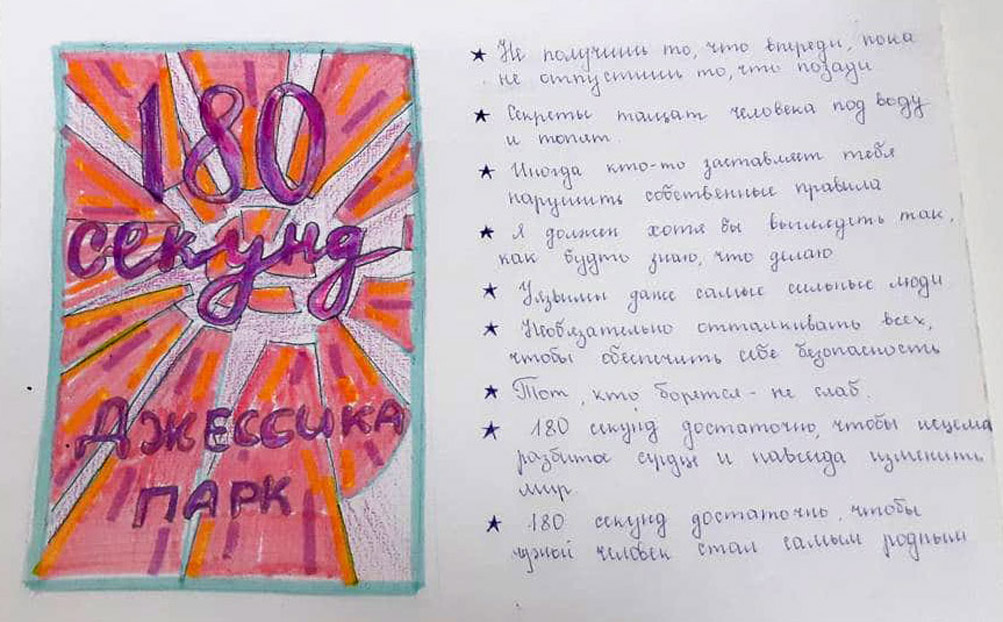 180
секунд
ДЖЕССИКА
ПАРК
★ Не получишь то, что впереди, пока
не отпустишь то, что позади
★ Секреты тащат человека под воду
и топят.
★ Иногда кто-то заставляет тебя
нарушить собственные правила
★ Я должен хотя бы выглядеть так,
как будто знаю, что делаю
★ Уязвимы даже самые сильные люди
★ Необязательно отталкивать всех,
чтобы обеспечить себе безопасность
★ Тот, кто борется - не слаб.
★ 180 секунд достаточно, чтобы исцели
разбитое сердце и навсегда изменить
мир.
★ 180 секунд достаточно, чтобы
чужой человек стал самым родным